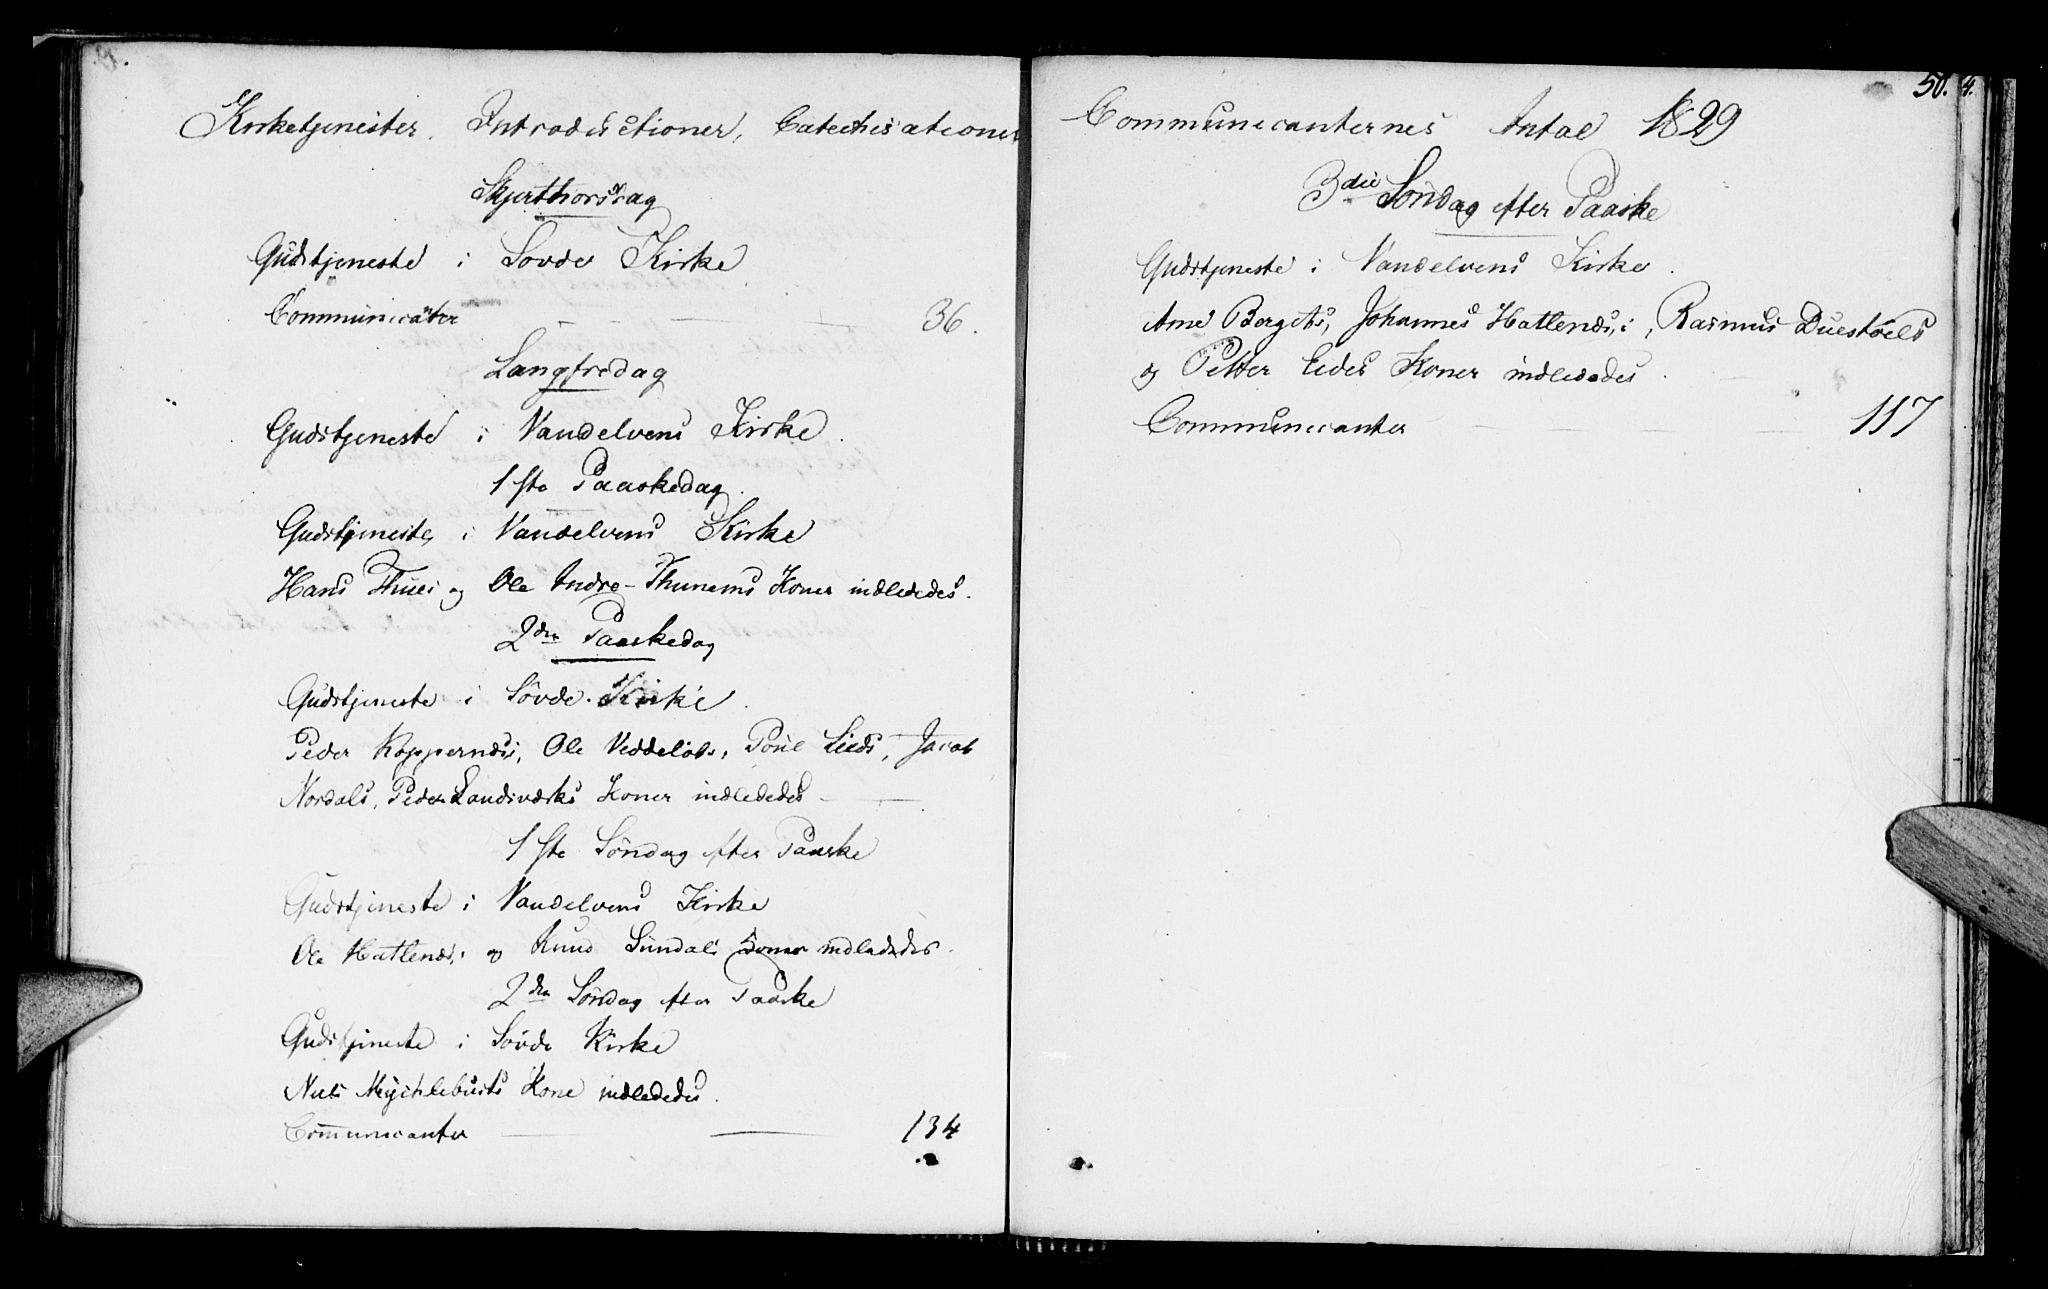 Kirketjenester, Introductioner, Catechisationer
Skjærthorsdag
Gudstjeneste i Søvde Kirke
Communicanter 36.
Langfredag
Gudstjeneste i Vandelvens Kirke.
1ste Paaskedag.
Gudstjeneste i Vandelvens Kirke
Hans Thues og Ole Indre-Thunems Koner indlededes.
2den Paaskedag
Gudstjeneste i Søvde Kirke.
Peder Koppernæs, Ole Veddelds, Poul Lieds, Jacob
Nordals, Peder Landsværks Koner indlededes
1ste Søndag efter Paaske
Gudstjeneste i Vandelvens Kirke
Ole Hatlenæs, og Knud Sundals Koner indlededes.
2den Søndag efter Paaske
Gudstjeneste i Søvde Kirke
Niels Mychlebusts Kone indlededes.
Communicanter 134
50. 4.
Communicanternes Antal 1829
3die Søndag efter Paaske
Gudstjeneste i Vandelvens Kirke.
Arne Bergets, Johannes Hatlenæs, Rasmus Duestøels
og Petter Eides Koner indlededes.
Communicanter 117